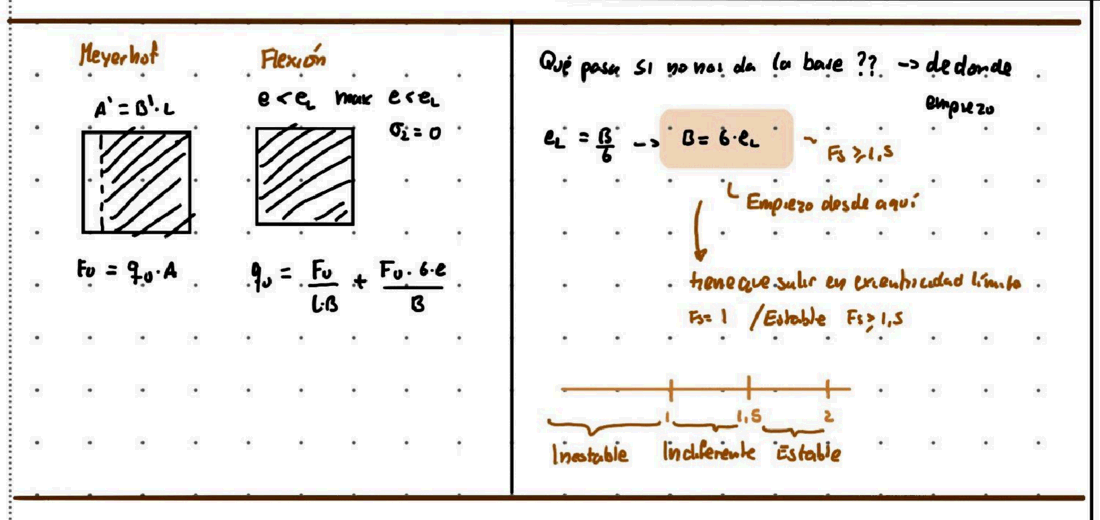 Meyerhof
A' = B'· L
Fu = qu·A
Flexión
e < eL max e < eL
σ2 = 0
qu = Fu / L·B + Fu · 6·e / B
Qué pasa si no nos da la base ?? -> de donde
empiezo
eL = B/6 -> B = 6·eL ~ Fs ≥ 1,5
Empiezo desde aquí
tiene que salir en excentricidad límite
Fs = 1 / Estable Fs ≥ 1,5
1 1,5 2
Inestable Indiferente Estable